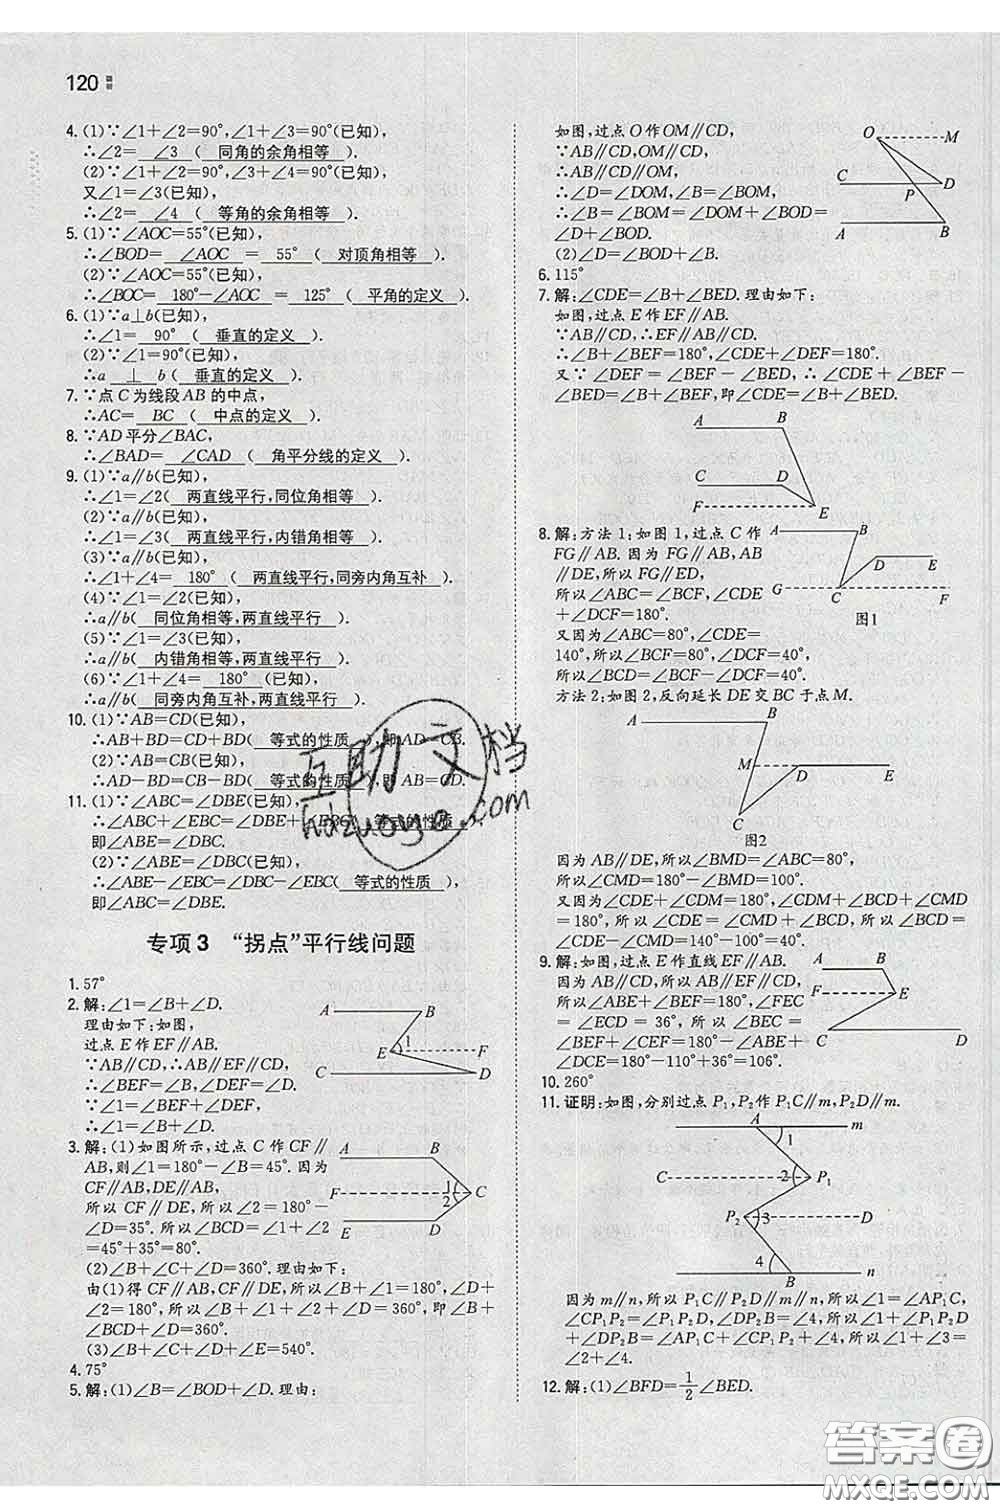 120
4. (1)∵∠1+∠2=90°,∠1+∠3=90°(已知),
∴∠2= ∠3 ( 同角的余角相等 ).
(2)∵∠1+∠2=90°,∠3+∠4=90°(已知),
又∠1=∠3(已知),
∴∠2= ∠4 ( 等角的余角相等 ).
5. (1)∵∠AOC=55°(已知),
∴∠BOD= ∠AOC = 55° ( 对顶角相等 ).
(2)∵∠AOC=55°(已知),
∴∠BOC= 180°-∠AOC = 125° ( 平角的定义 ).
6. (1)∵a⊥b(已知),
∴∠1= 90° ( 垂直的定义 ).
(2)∵∠1=90°(已知),
∴a ⊥ b( 垂直的定义 ).
7. ∵点C为线段AB的中点,
∴AC= BC ( 中点的定义 ).
8. ∵AD平分∠BAC,
∴∠BAD= ∠CAD ( 角平分线的定义 ).
9. (1)∵a∥b(已知),
∴∠1=∠2( 两直线平行,同位角相等 ).
(2)∵a∥b(已知),
∴∠1=∠3( 两直线平行,内错角相等 ).
(3)∵a∥b(已知),
∴∠1+∠4= 180° ( 两直线平行,同旁内角互补 ).
(4)∵∠1=∠2(已知),
∴a∥b( 同位角相等,两直线平行 ).
(5)∵∠1=∠3(已知),
∴a∥b( 内错角相等,两直线平行 ).
(6)∵∠1+∠4= 180° (已知),
∴a∥b( 同旁内角互补,两直线平行 ).
10. (1)∵AB=CD(已知),
∴AB+BD=CD+BD( 等式的性质 ),即AD=CB.
(2)∵AB=CB(已知),
∴AD-BD=CB-BD( 等式的性质 ),即AB=CD.
11. (1)∵∠ABC=∠DBE(已知),
∴∠ABC+∠EBC=∠DBE+∠EBC( 等式的性质 ),
即∠ABE=∠DBC.
(2)∵∠ABE=∠DBC(已知),
∴∠ABE-∠EBC=∠DBC-∠EBC( 等式的性质 ),
即∠ABC=∠DBE.
专项3 “拐点”平行线问题
1. 57°
2. 解:∠1=∠B+∠D.
理由如下:如图,
过点E作EF∥AB.
∵AB∥CD,∴AB∥EF∥CD,
∴∠BEF=∠B,∠DEF=∠D.
∵∠1=∠BEF+∠DEF,
∴∠1=∠B+∠D.
A B E 1 F C D
3. 解:(1)如图所示,过点C作CF∥
AB,则∠1=180°-∠B=45°.因为
CF∥AB,DE∥AB,
所以CF∥DE,所以∠2=180°-
∠D=35°.所以∠BCD=∠1+∠2
=45°+35°=80°.
A B F 1 2 C E D
(2)∠B+∠C+∠D=360°.理由如下:
由(1)得CF∥AB,CF∥DE,所以∠B+∠1=180°,∠D+
∠2=180°,所以∠B+∠1+∠2+∠D=360°,即∠B+
∠BCD+∠D=360°.
(3)∠B+∠C+∠D+∠E=540°.
4. 75°
5. 解:(1)∠B=∠BOD+∠D.理由:
如图,过点O作OM∥CD,
∵AB∥CD,OM∥CD,
∴AB∥OM∥CD,
∴∠D=∠DOM,∠B=∠BOM,
∴∠B=∠BOM=∠DOM+∠BOD=
∠D+∠BOD.
(2)∠D=∠BOD+∠B.
O M C D P A B
6. 115°
7. 解:∠CDE=∠B+∠BED.理由如下:
如图,过点E作EF∥AB.
∵AB∥CD,∴EF∥AB∥CD,
∴∠B+∠BEF=180°,∠CDE+∠DEF=180°.
又∵∠DEF=∠BEF-∠BED,∴∠CDE+∠BEF-
∠BED=∠BEF+∠B,即∠CDE=∠B+∠BED.
A B C D F E
8. 解:方法1:如图1,过点C作
FG∥AB.因为FG∥AB,AB
∥DE,所以FG∥ED,
所以∠ABC=∠BCF,∠CDE
+∠DCF=180°.
又因为∠ABC=80°,∠CDE=
140°,所以∠BCF=80°,∠DCF=40°,
所以∠BCD=∠BCF-∠DCF=40°.
A B D E G C F
图1
方法2:如图2,反向延长DE交BC于点M.
A B M D E C
图2
因为AB∥DE,所以∠BMD=∠ABC=80°,
所以∠CMD=180°-∠BMD=100°.
又因为∠CDE+∠CDM=180°,∠CDM+∠BCD+∠CMD
=180°,所以∠CDE=∠CMD+∠BCD,所以∠BCD=
∠CDE-∠CMD=140°-100°=40°.
9. 解:如图,过点E作直线EF∥AB.
因为AB∥CD,所以EF∥CD,
所以∠ABE+∠BEF=180°,∠FEC
=∠ECD=36°,所以∠BEC=
∠BEF+∠CEF=180°-∠ABE+
∠DCE=180°-110°+36°=106°.
A B F E C D
10. 260°
11. 证明:如图,分别过点P₁,P₂作P₁C∥m,P₂D∥m.
A m 1 C 2 P₁ P₂ 3 D 4 B n
因为m∥n,所以P₁C∥P₂D∥m∥n,所以∠1=∠AP₁C,
∠CP₁P₂=∠P₁P₂D,∠DP₂B=∠4,所以∠1+∠P₁P₂D
+∠DP₂B=∠AP₁C+∠CP₁P₂+∠4,所以∠1+∠P₁P₂B=
∠2+∠4.
12. 解:(1)∠BFD=1/2∠BED.
互助文档
huzuoye.com
答案圈
MXQE.COM